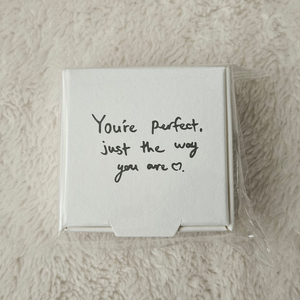 You're perfect.
just the way
you are♡.